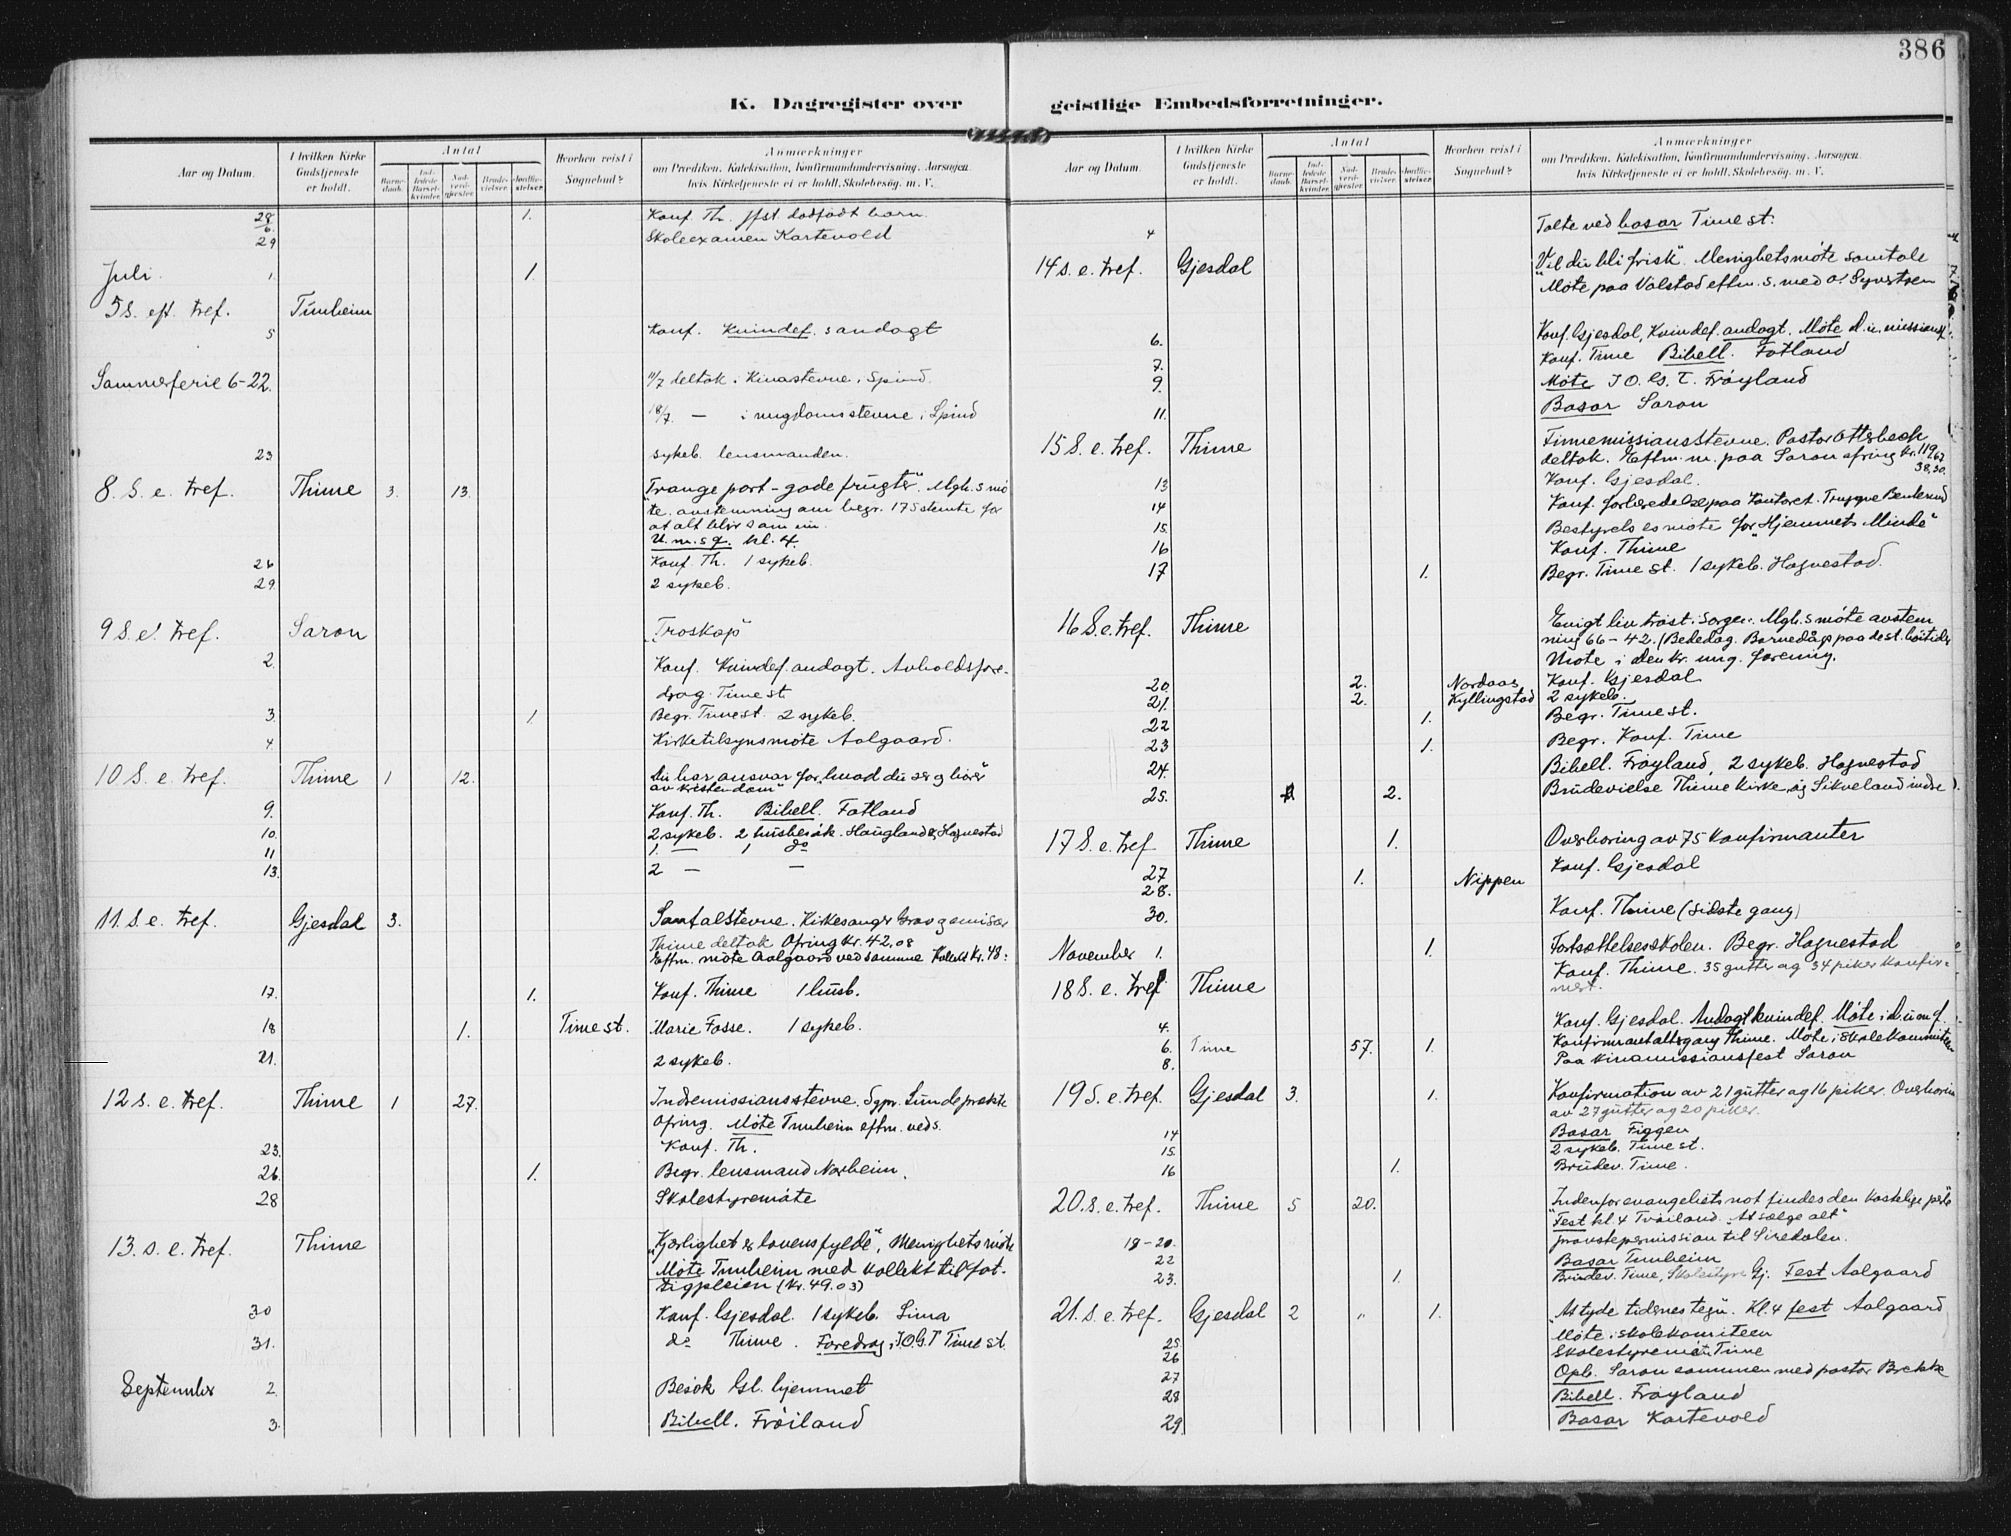 386
K. Dagregister over geistlige Embedsforretninger.
Aar og Datum. I hvilken Kirke Gudstjeneste er holdt. Antal Barnedaab. Indledede Barselkvinder. Nadverdgjester. Brudevielser. Jordfæstelser. Hvorhen reist i Sognebud? Anmærkninger om Prædiken, Katekisation, Konfirmandundervisning, Aarsagen hvis Kirketjeneste ei er holdt, Skolebesøg. m. V.
28/6. 1. Konf. Th. Jfst. dødfødt barn.
29 Skoleexamen Kartevold
Juli. 1. 1.
5 S. eft. tref. Tunheim
5 Konf. Kvindef.s andagt
Sommerferie 6-22. 11/7 deltok i Kinastevne, Spind.
18/7. — i ungdomsstevne i Spind
23 sykeb. lensmanden.
8. S. e. tref. Thime 3. 13. "Trange port - gode frugter". Mgh.s mø
te. avstemning om begr. 17 Stemte for
at alt blir som nu.
U.m.s q. kl. 4.
26 Konf. Th. 1 sykeb.
29. 2 sykeb.
9 S. e. tref. Saron "Troskap"
2. Konf. Kvindef. andagt. Avholdsfore-
drag Time st.
3. 1 Begr. Time st. 2 sykeb.
4. Kirketilsynsmøte Aalgaard.
10 S. e. tref. Thime 1 12. Du har ansvar for "hvad du ser og hører
av kristendom"
9. Konf. Th. Bibell. Fotland
10. 2 sykeb. 2 husbesøk. Haugland & Hognestad
11 1. — 1 do
13. 2 — —
11. S. e. tref. Gjesdal 3. Samtalstevne. Kirkesanger
Thime deltok Ofring kr. 42,08
Eftm. møte Aalgaard ved samme Kollekt kr. 48:
17. 1. Konf. Thime 1 husb.
18 1. Time st. Marie Fosse. 1 sykeb.
21. 2 sykeb.
12 S. e. tref. Thime 1 27. Indremissionsstevne. Sgpr. Sunde prækte
Ofring. Møte Tunheim eftm. veds.
23. Konf. Th.
26. 1. Begr. lensmand Norheim.
28 Skolestyremøte
13. S. e. tref. Thime "Kjærlighet er lovens fylde", Menighetsmøte
Møte Tunheim med kollekt til fat-
tigpleien (kr. 49.03)
30 Konf. Gjesdal. 1 sykeb. Lima
31. do Thime. Foredrag i I.O.G.T Time st.
September 2. Besøk Gl. hjemmet
3. Bibell. Frøiland
Aar og Datum. I hvilken Kirke Gudstjeneste er holdt. Antal Barnedaab. Indledede Barselkvinder. Nadverdgjester. Brudevielser. Jordfæstelser. Hvorhen reist i Sognebud? Anmærkninger om Prædiken, Katekisation, Konfirmandundervisning, Aarsagen hvis Kirketjeneste ei er holdt, Skolebesøg. m. V.
4 Talte ved basar Time st.
14 S. e. tref. Gjesdal "Vil du bli frisk". Menighetsmøte samtale
Møte paa Valstad eftm. s. med O.
6. Konf. Gjesdal, Kvindef. andagt. Møte
7. Konf. Time Bibell. Fotland
9. Møte I O. G. T. Frøyland
11. Basar Saron
15 S. e. tref. Thime Finnemissionsstevne. Pastor Otterbech
deltok. Eftm. m. paa Saron ofring kr. 119,67
38,50.
13 Konf. Gjesdal.
14 Konf. forberedelse paa Kontoret.
15. Bestyrelsesmøte for "Hjemmets Minde"
16 Konf. Thime
17 1. Begr. Time st. 1 sykeb. Hognestad.
16 S. e. tref. Thime Evigt liv trøst i sorgen. Mgh.s møte avstem
ning 66-42. (Bededag. Barnedåp paa de st. høitider
Møte i den kr. ung. forening.
20. 2. Nordaas Konf. Gjesdal
21. 2. Kyllingstad 2 sykeb.
22 1. Begr. Time st.
23 1. Begr. Konf. Time
24. Bibell. Frøyland, 2 sykeb. Hognestad
25. 2. Brudevielse Thime Kirke og Sikveland indre
17 S. e. tref Thime 1. Overhøring av 75 konfirmanter
27 1. Nippen Konf. Gjesdal
28.
30. Konf. Thime (sidste gang)
November 1. 1. Fortsættelsesskolen. Begr. Hognestad
Konf. Thime. 35 gutter og 34 piker konfir-
mert.
18 S. e. tref Thime
4. Konf. Gjesdal. Andagt kvindef. Møte
6. Time 57. 1. Konfirmantaltergang Thime. Møte i skolekommiteen
8. Paa Kinamissionsfest Saron
19 S. e. tref. Gjesdal 3. 1. Konfirmation av 21 gutter og 16 piker. Overhøring
av 27 gutter og 20 piker.
14 Basar Figgen
15. 2 sykeb. Time st.
16 1. Brudev. Time.
20. S. e. tref. Thime 5 20. Indenfor evangeliets not findes den kostelige perle
"Fest kl. 4 Frøiland. At sælge alt"
18-20. provstepermission til Siredalen.
22 Basar Tunheim
23. 1. Brudev. Time, Skolestyre Gj. Fest Aalgaard
21. S. e. tref. Gjesdal 2 " 1. "At tyde tidernes tegn. Kl. 4 fest Aalgaard
Møte i skolekomiteen
25. Skolestyremøte Time
26 Opb. Saron sammen med pastor Brekke
27
28 Bibell. Frøyland
29. Basar Kartevold